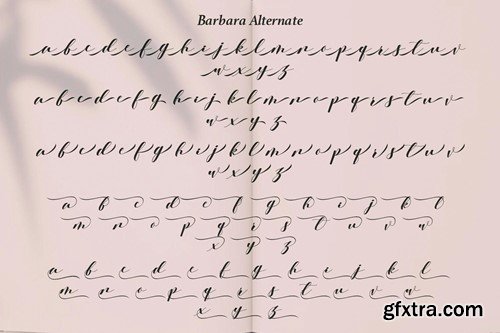 Barbara Alternate
a b c d e f g h i j k l m n o p q r s t u v
w x y z
a b c d e f g h i j k l m n o p q r s t u v
w x y z
a b c d e f g h i j k l m n o p q r s t u v
w x y z
a b c d e f g h i j k l
m n o p q r s t u v w
x y z
a b c d e f g h i j k l
m n o p q r s t u v w
x y z
gfxtra.com